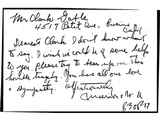 Mr Clark Gable
4517 Petit Ave. Encino
Calif
Dearest Clark I don't know what
to say. I wish we could be of some help
to you please try to bear up in this
awful tragedy. You have all our love
+ sympathy. Affectionately